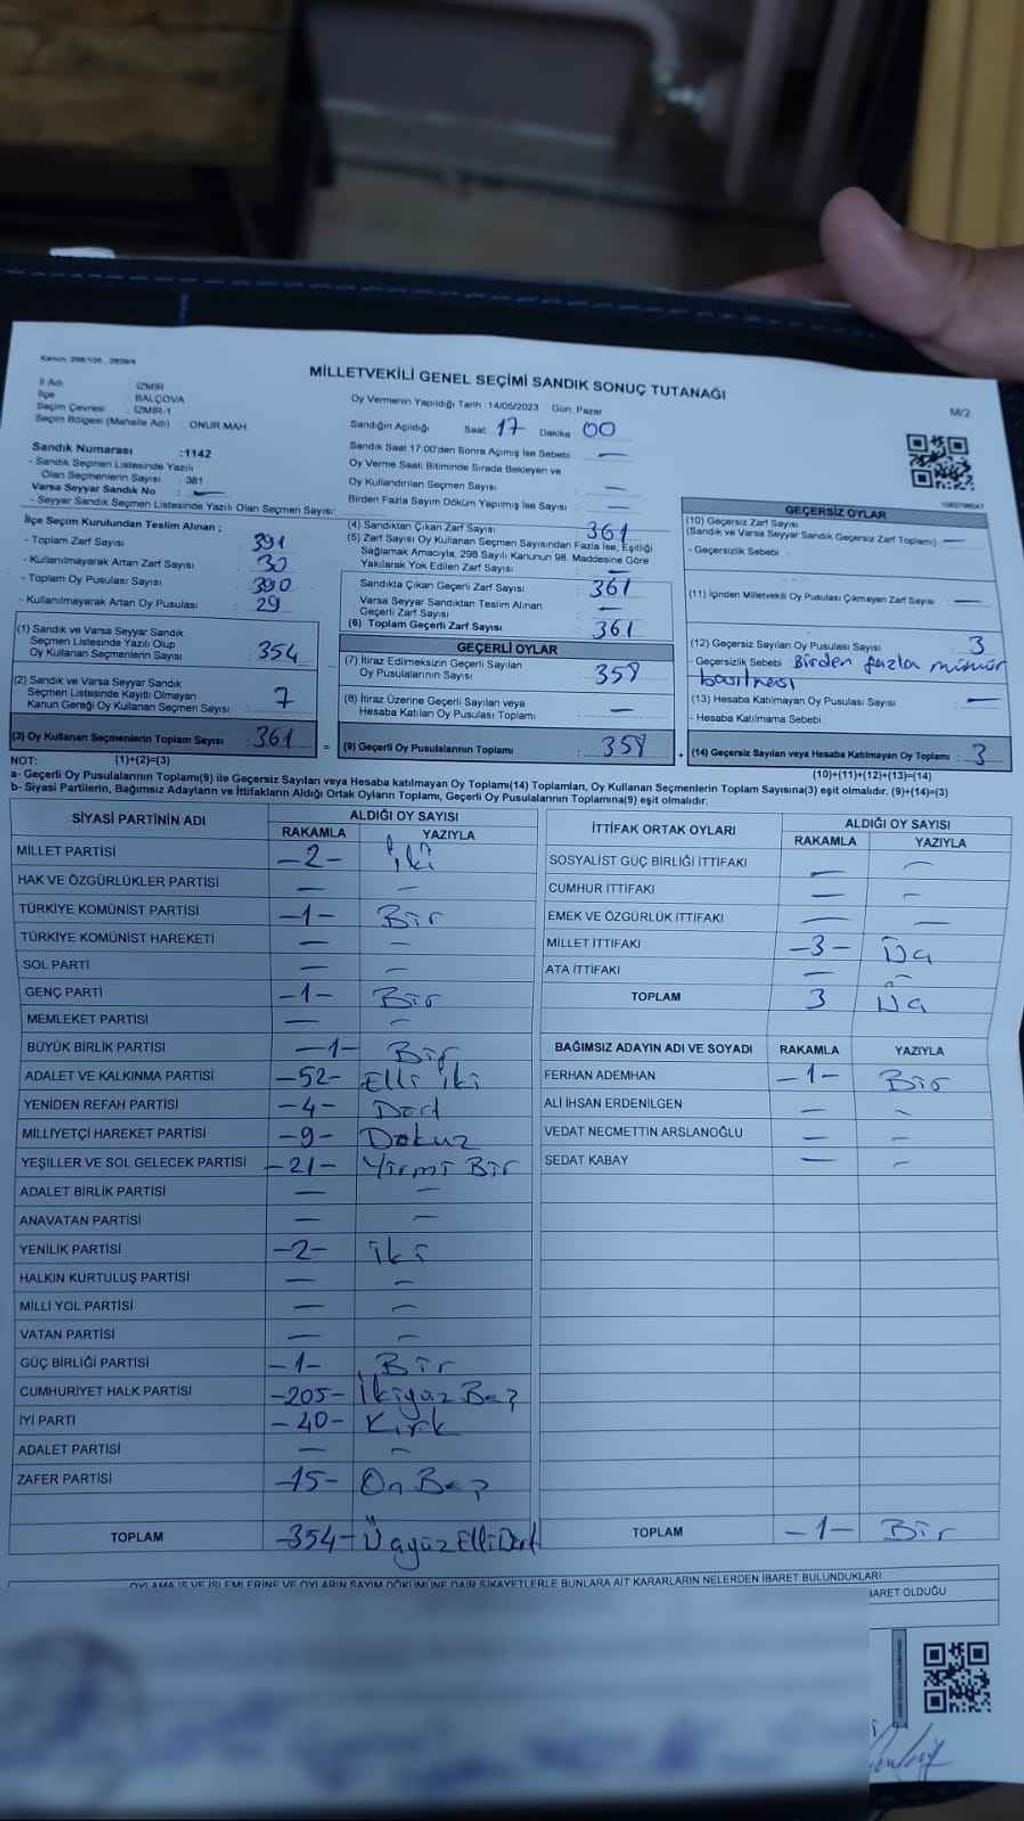 MİLLETVEKİLİ GENEL SEÇİMİ SANDIK SONUÇ TUTANAĞI
M/2
İl Adı : İZMİR
İlçe : BALÇOVA
Seçim Çevresi : İZMİR-1
Seçim Bölgesi (Mahalle Adı) : ONUR MAH.
Oy Vermenin Yapıldığı Tarih :14/05/2023 Gün: Pazar
Sandığın Açıldığı Saat 17 Dakika 00
Sandık Saat 17:00'den Sonra Açılmış İse Sebebi : —
Oy Verme Saati Bitiminde Sırada Bekleyen ve
Oy Kullandırılan Seçmen Sayısı : —
Birden Fazla Sayım Döküm Yapılmış İse Sayısı : —
Sandık Numarası :1142
- Sandık Seçmen Listesinde Yazılı
Olan Seçmenlerin Sayısı : 381
Varsa Seyyar Sandık No : —
- Seyyar Sandık Seçmen Listesinde Yazılı Olan Seçmen Sayısı:
İlçe Seçim Kurulundan Teslim Alınan ;
- Toplam Zarf Sayısı : 391
- Kullanılmayarak Artan Zarf Sayısı : 30
- Toplam Oy Pusulası Sayısı : 390
- Kullanılmayarak Artan Oy Pusulası : 29
(1) Sandık ve Varsa Seyyar Sandık
Seçmen Listesinde Yazılı Olup
Oy Kullanan Seçmenlerin Sayısı : 354
(2) Sandık ve Varsa Seyyar Sandık
Seçmen Listesinde Kayıtlı Olmayan
Kanun Gereği Oy Kullanan Seçmen Sayısı : 7
(3) Oy Kullanan Seçmenlerin Toplam Sayısı : 361
(1)+(2)=(3)
(4) Sandıktan Çıkan Zarf Sayısı : 361
(5) Zarf Sayısı Oy Kullanan Seçmen Sayısından Fazla İse, Eşitliği
Sağlamak Amacıyla, 298 Sayılı Kanunun 98. Maddesine Göre
Yakılarak Yok Edilen Zarf Sayısı : —
Sandıkta Çıkan Geçerli Zarf Sayısı : 361
Varsa Seyyar Sandıktan Teslim Alınan
Geçerli Zarf Sayısı : —
(6) Toplam Geçerli Zarf Sayısı : 361
GEÇERLİ OYLAR
(7) İtiraz Edilmeksizin Geçerli Sayılan
Oy Pusulalarının Sayısı : 358
(8) İtiraz Üzerine Geçerli Sayılan veya
Hesaba Katılan Oy Pusulası Toplamı : —
= (9) Geçerli Oy Pusulalarının Toplamı : 358
GEÇERSİZ OYLAR
(10) Geçersiz Zarf Sayısı
(Sandık ve Varsa Seyyar Sandık Geçersiz Zarf Toplamı) : —
- Geçersizlik Sebebi :
(11) İçinden Milletvekili Oy Pusulası Çıkmayan Zarf Sayısı : —
(12) Geçersiz Sayılan Oy Pusulası Sayısı : 3
- Geçersizlik Sebebi Birden fazla mühür
basılması
(13) Hesaba Katılmayan Oy Pusulası Sayısı : —
- Hesaba Katılmama Sebebi
+ (14) Geçersiz Sayılan veya Hesaba Katılmayan Oy Toplamı : 3
(10)+(11)+(12)+(13)=(14)
NOT:
a- Geçerli Oy Pusulalarının Toplamı(9) ile Geçersiz Sayılan veya Hesaba katılmayan Oy Toplamı(14) Toplamları, Oy Kullanan Seçmenlerin Toplam Sayısına(3) eşit olmalıdır. (9)+(14)=(3)
b- Siyasi Partilerin, Bağımsız Adayların ve İttifakların Aldığı Ortak Oyların Toplamı, Geçerli Oy Pusulalarının Toplamına(9) eşit olmalıdır.
SİYASİ PARTİNİN ADI ALDIĞI OY SAYISI
RAKAMLA YAZIYLA
MİLLET PARTİSİ -2- İki
HAK VE ÖZGÜRLÜKLER PARTİSİ — —
TÜRKİYE KOMÜNİST PARTİSİ -1- Bir
TÜRKİYE KOMÜNİST HAREKETİ — —
SOL PARTİ — —
GENÇ PARTİ -1- Bir
MEMLEKET PARTİSİ — —
BÜYÜK BİRLİK PARTİSİ -1- Bir
ADALET VE KALKINMA PARTİSİ -52- Elli iki
YENİDEN REFAH PARTİSİ -4- Dört
MİLLİYETÇİ HAREKET PARTİSİ -9- Dokuz
YEŞİLLER VE SOL GELECEK PARTİSİ -21- Yirmi Bir
ADALET BİRLİK PARTİSİ — —
ANAVATAN PARTİSİ — —
YENİLİK PARTİSİ -2- iki
HALKIN KURTULUŞ PARTİSİ — —
MİLLİ YOL PARTİSİ — —
VATAN PARTİSİ — —
GÜÇ BİRLİĞİ PARTİSİ -1- Bir
CUMHURİYET HALK PARTİSİ -205- İkiyüz Beş
İYİ PARTİ -40- Kırk
ADALET PARTİSİ — —
ZAFER PARTİSİ -15- On Beş
TOPLAM -354- Üçyüz Elli Dört
İTTİFAK ORTAK OYLARI ALDIĞI OY SAYISI
RAKAMLA YAZIYLA
SOSYALİST GÜÇ BİRLİĞİ İTTİFAKI — —
CUMHUR İTTİFAKI — —
EMEK VE ÖZGÜRLÜK İTTİFAKI — —
MİLLET İTTİFAKI -3- Üç
ATA İTTİFAKI — —
TOPLAM 3 Üç
BAĞIMSIZ ADAYIN ADI VE SOYADI RAKAMLA YAZIYLA
FERHAN ADEMHAN -1- Bir
ALİ İHSAN ERDENİLGEN — —
VEDAT NECMETTİN ARSLANOĞLU — —
SEDAT KABAY — —
TOPLAM -1- Bir
OYLAMA İŞ VE İŞLEMLERİNE VE OYLARIN SAYIM DÖKÜMÜNE DAİR ŞİKAYETLERLE BUNLARA AİT KARARLARIN NELERDEN İBARET BULUNDUKLARI
İBARET OLDUĞU